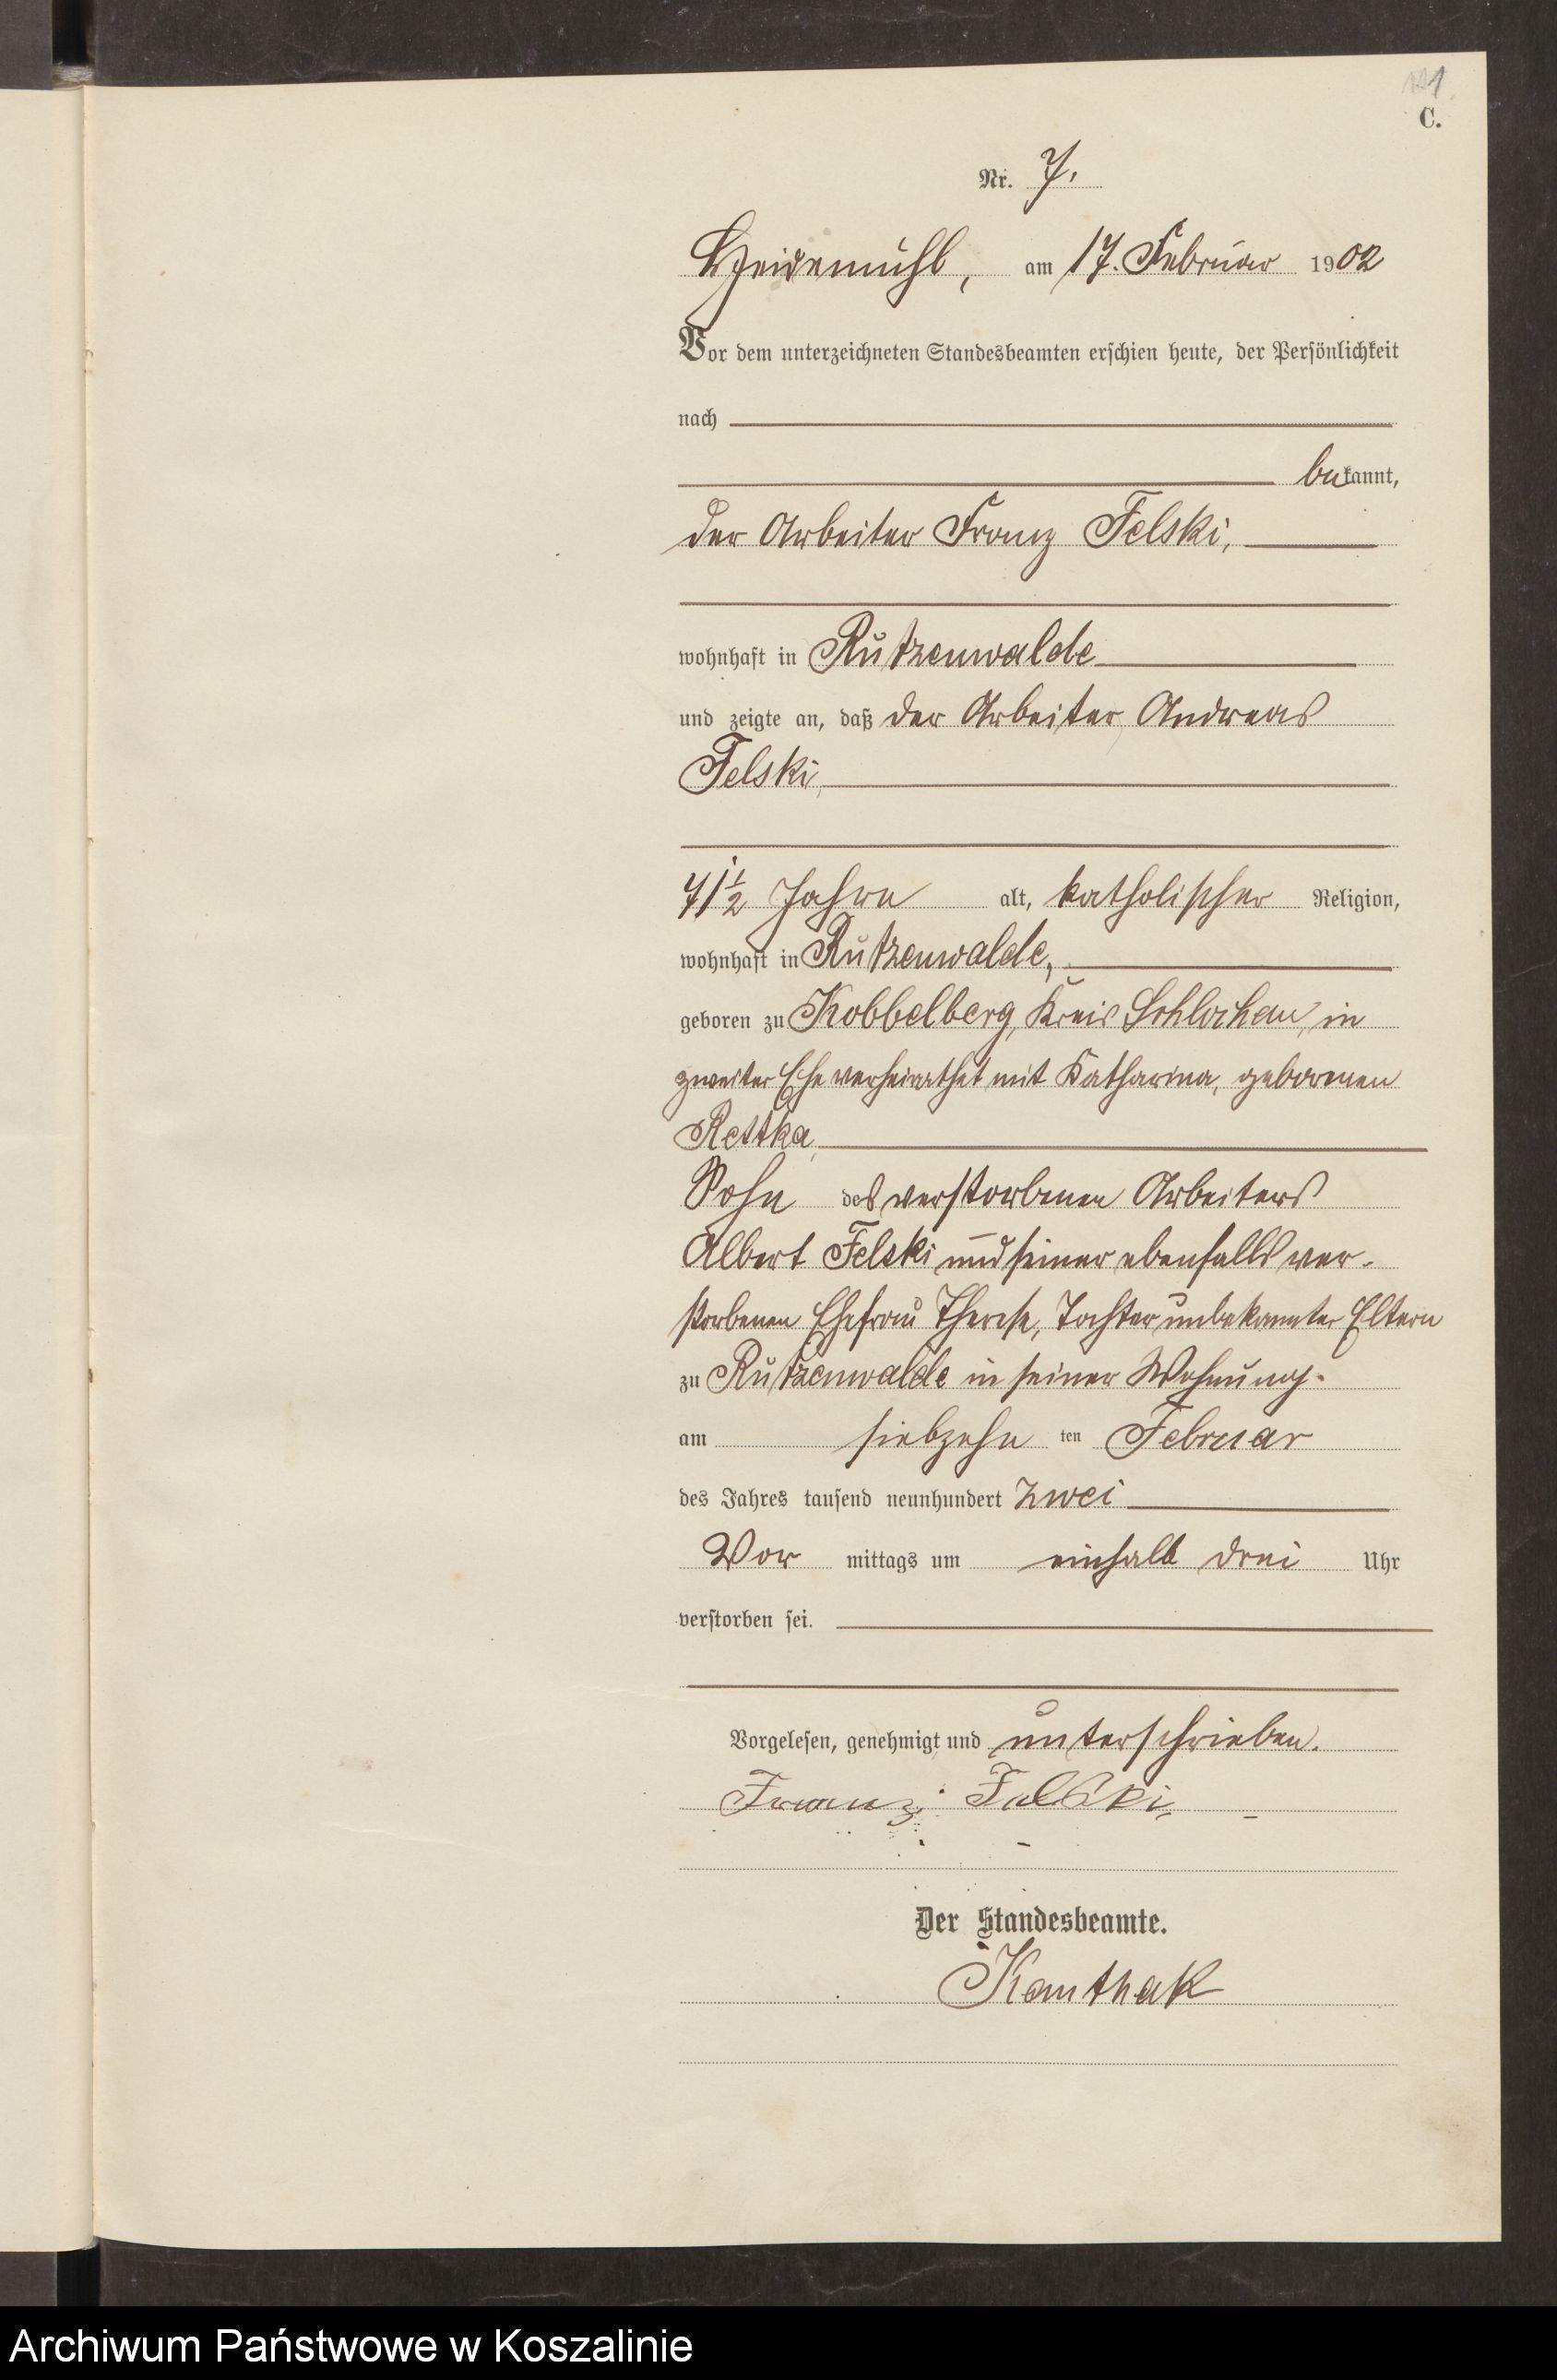 C.
Nr. 7.
Heidemühl, am 17. Februar 1902
Vor dem unterzeichneten Standesbeamten erschien heute, der Persönlichkeit
nach
bekannt,
der Arbeiter Franz Felski,
wohnhaft in Rutzenwalde
und zeigte an, daß der Arbeiter Andreas
Felski,
71½ Jahre alt, katholischer Religion,
wohnhaft in Rutzenwalde,
geboren zu Kobbelberg, Kreis Schlochau, in
zweiter Ehe verheirathet mit Katharina, geborenen
Rettka,
Sohn des verstorbenen Arbeiters
Albert Felski und seiner ebenfalls ver-
storbenen Ehefrau Therese, Tochter unbekannter Eltern
zu Rutzenwalde in seiner Wohnung
am siebzehn ten Februar
des Jahres tausend neunhundert zwei
Vor mittags um einhalb drei Uhr
verstorben sei.
Vorgelesen, genehmigt und unterschrieben.
Franz Felski,
Der Standesbeamte.
Kanthak
Archiwum Państwowe w Koszalinie